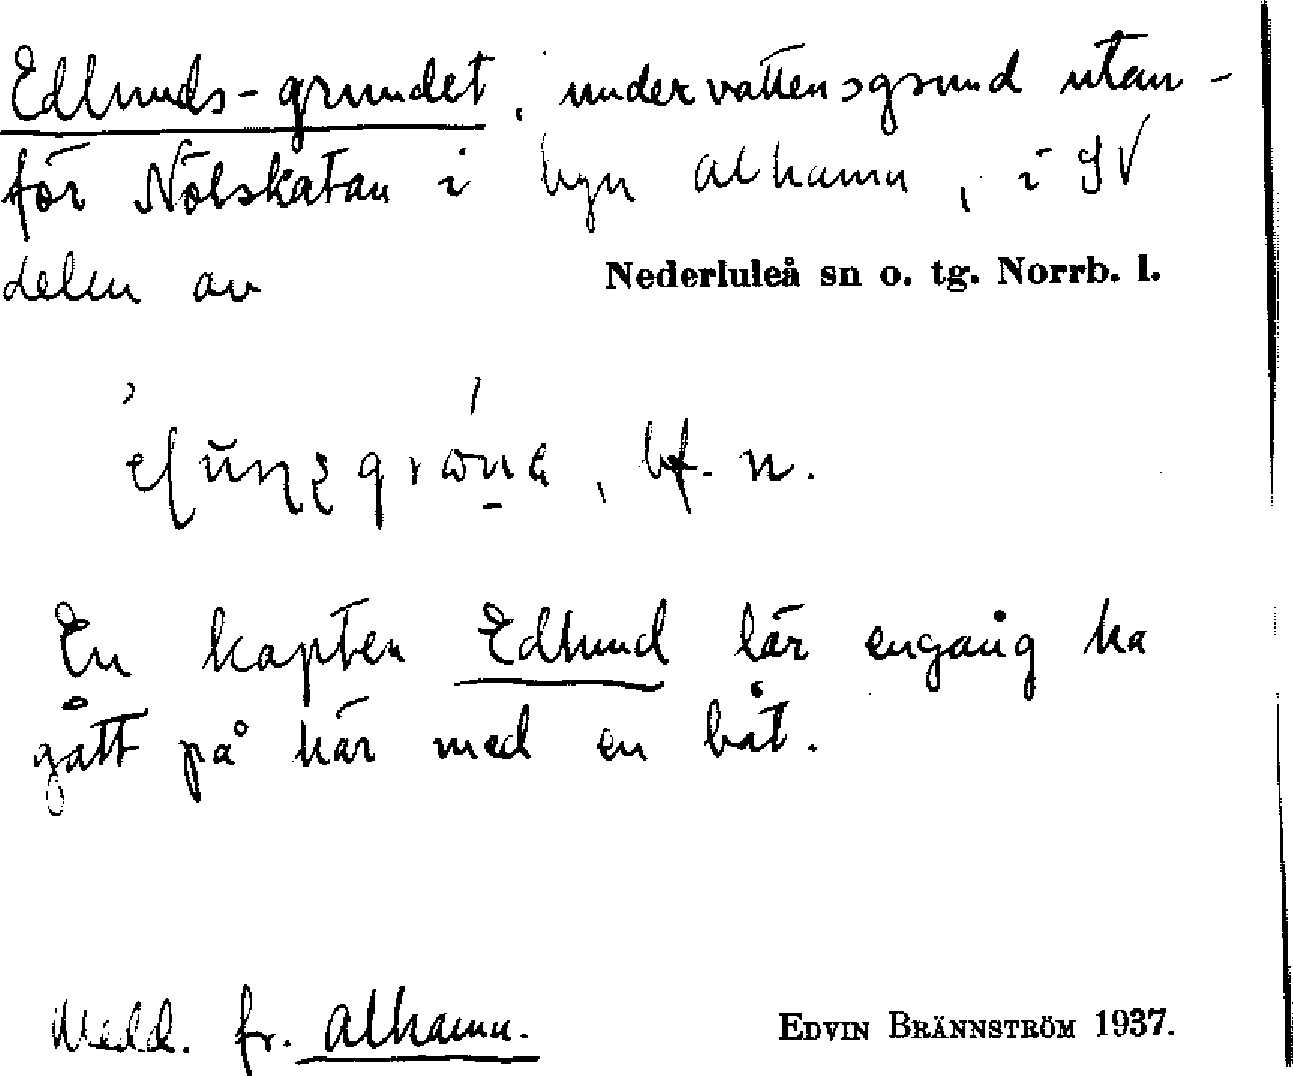 Edlunds-grundet, undervattensgrund utan-
för Nölskatan i byn Alhamn, i SV
delen av Nederluleå sn o. tg. Norrb. l.
bf. n.
En kapten Edlund lär engång ha
gått på här med en båt.
Medd. fr. Alhamn. EDVIN BRÄNNSTRÖM 1937.